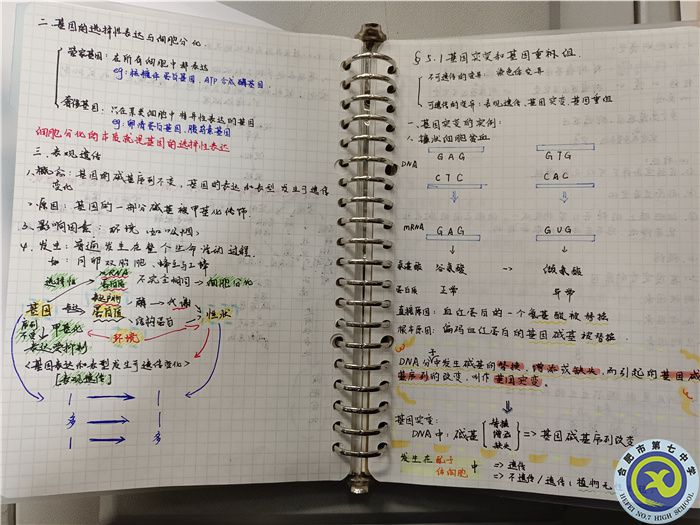 二.基因的选择性表达与细胞分化.
管家基因：在所有细胞中都表达
eg：核糖体蛋白基因、ATP合成酶基因.
奢侈基因：只在某类细胞中特异性表达的基因
eg：卵清蛋白基因、胰岛素基因
细胞分化的本质就是基因的选择性表达
三.表观遗传
1.概念：基因的碱基序列不变，基因的表达和表型发生可遗传
变化
2.原因：基因的一部分碱基被甲基化修饰.
3.影响因素：环境（如吸烟）
4.发生：普遍发生在整个生命活动过程.
如：同卵双胞胎 蜂王与工蜂
选择性 mRNA
蛋白质 不完全相同→细胞分化
基因 表达 蛋白质 酶→代谢 性状
结构蛋白
甲基化 环境
表达受抑制
<基因表达和表型发生可遗传变化>
[表观遗传]
1 → 1
多 → 1
1 → 多
§5.1基因突变和基因重组.
不可遗传的变异：
可遗传的变异：表观遗传、基因突变、基因重组
一.基因突变的实例：
1.镰状细胞贫血
DNA GAG GTG
CTC CAC
mRNA GAG GUG
氨基酸 谷氨酸 -> 缬氨酸
蛋白质 正常 异常
直接原因：血红蛋白的一个氨基酸被替换
根本原因：编码血红蛋白的基因碱基被替换.
DNA分子中发生碱基的替换、增添或缺失，而引起的基因碱
基序列的改变，叫作基因突变。
基因突变：
DNA中：碱基 替换 增添 缺失 => 基因碱基序列改变
发生在 配子 中 => 遗传
体细胞 => 不遗传/遗传：植物无
合肥市第七中学
HEFEI NO.7 HIGH SCHOOL